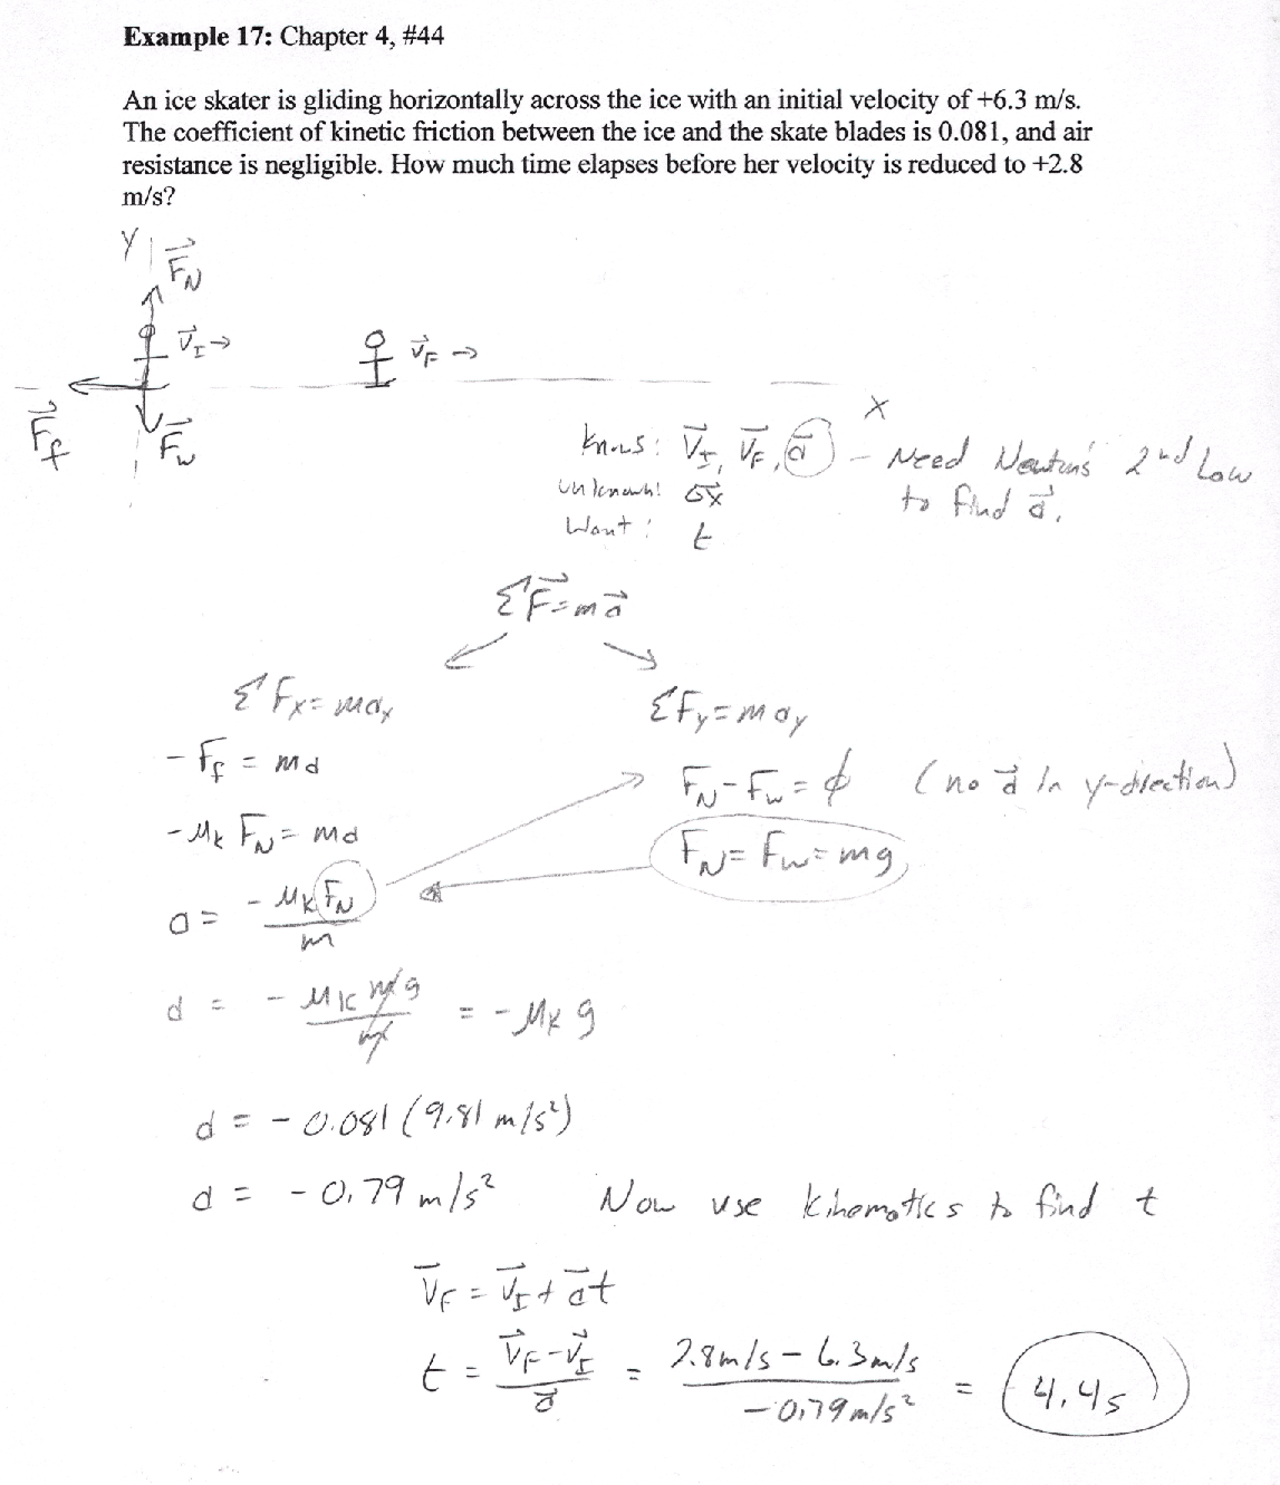 Example 17: Chapter 4, #44
An ice skater is gliding horizontally across the ice with an initial velocity of +6.3 m/s.
The coefficient of kinetic friction between the ice and the skate blades is 0.081, and air
resistance is negligible. How much time elapses before her velocity is reduced to +2.8
m/s?
Y
F⃗_N
V⃗_I →
V⃗_F →
F⃗_f
F⃗_w
X
Knows: V⃗_I, V⃗_F, a⃗ – Need Newton's 2nd Law
to find a⃗.
Unknown: Δx⃗
Want: t
ΣF⃗ = ma⃗
ΣF_x = ma_x
ΣF_y = ma_y
-F_f = ma
F_N - F_w = 0 (no a⃗ in y-direction)
-μ_k F_N = ma
F_N = F_w = mg
a = -μ_k F_N / m
a = -μ_k mg / m = -μ_k g
a = -0.081 (9.81 m/s²)
a = -0.79 m/s² Now use kinematics to find t
V⃗_F = V⃗_I + a⃗t
t = (V⃗_F - V⃗_I) / a⃗ = (2.8m/s - 6.3m/s) / (-0.79m/s²) = 4.4s